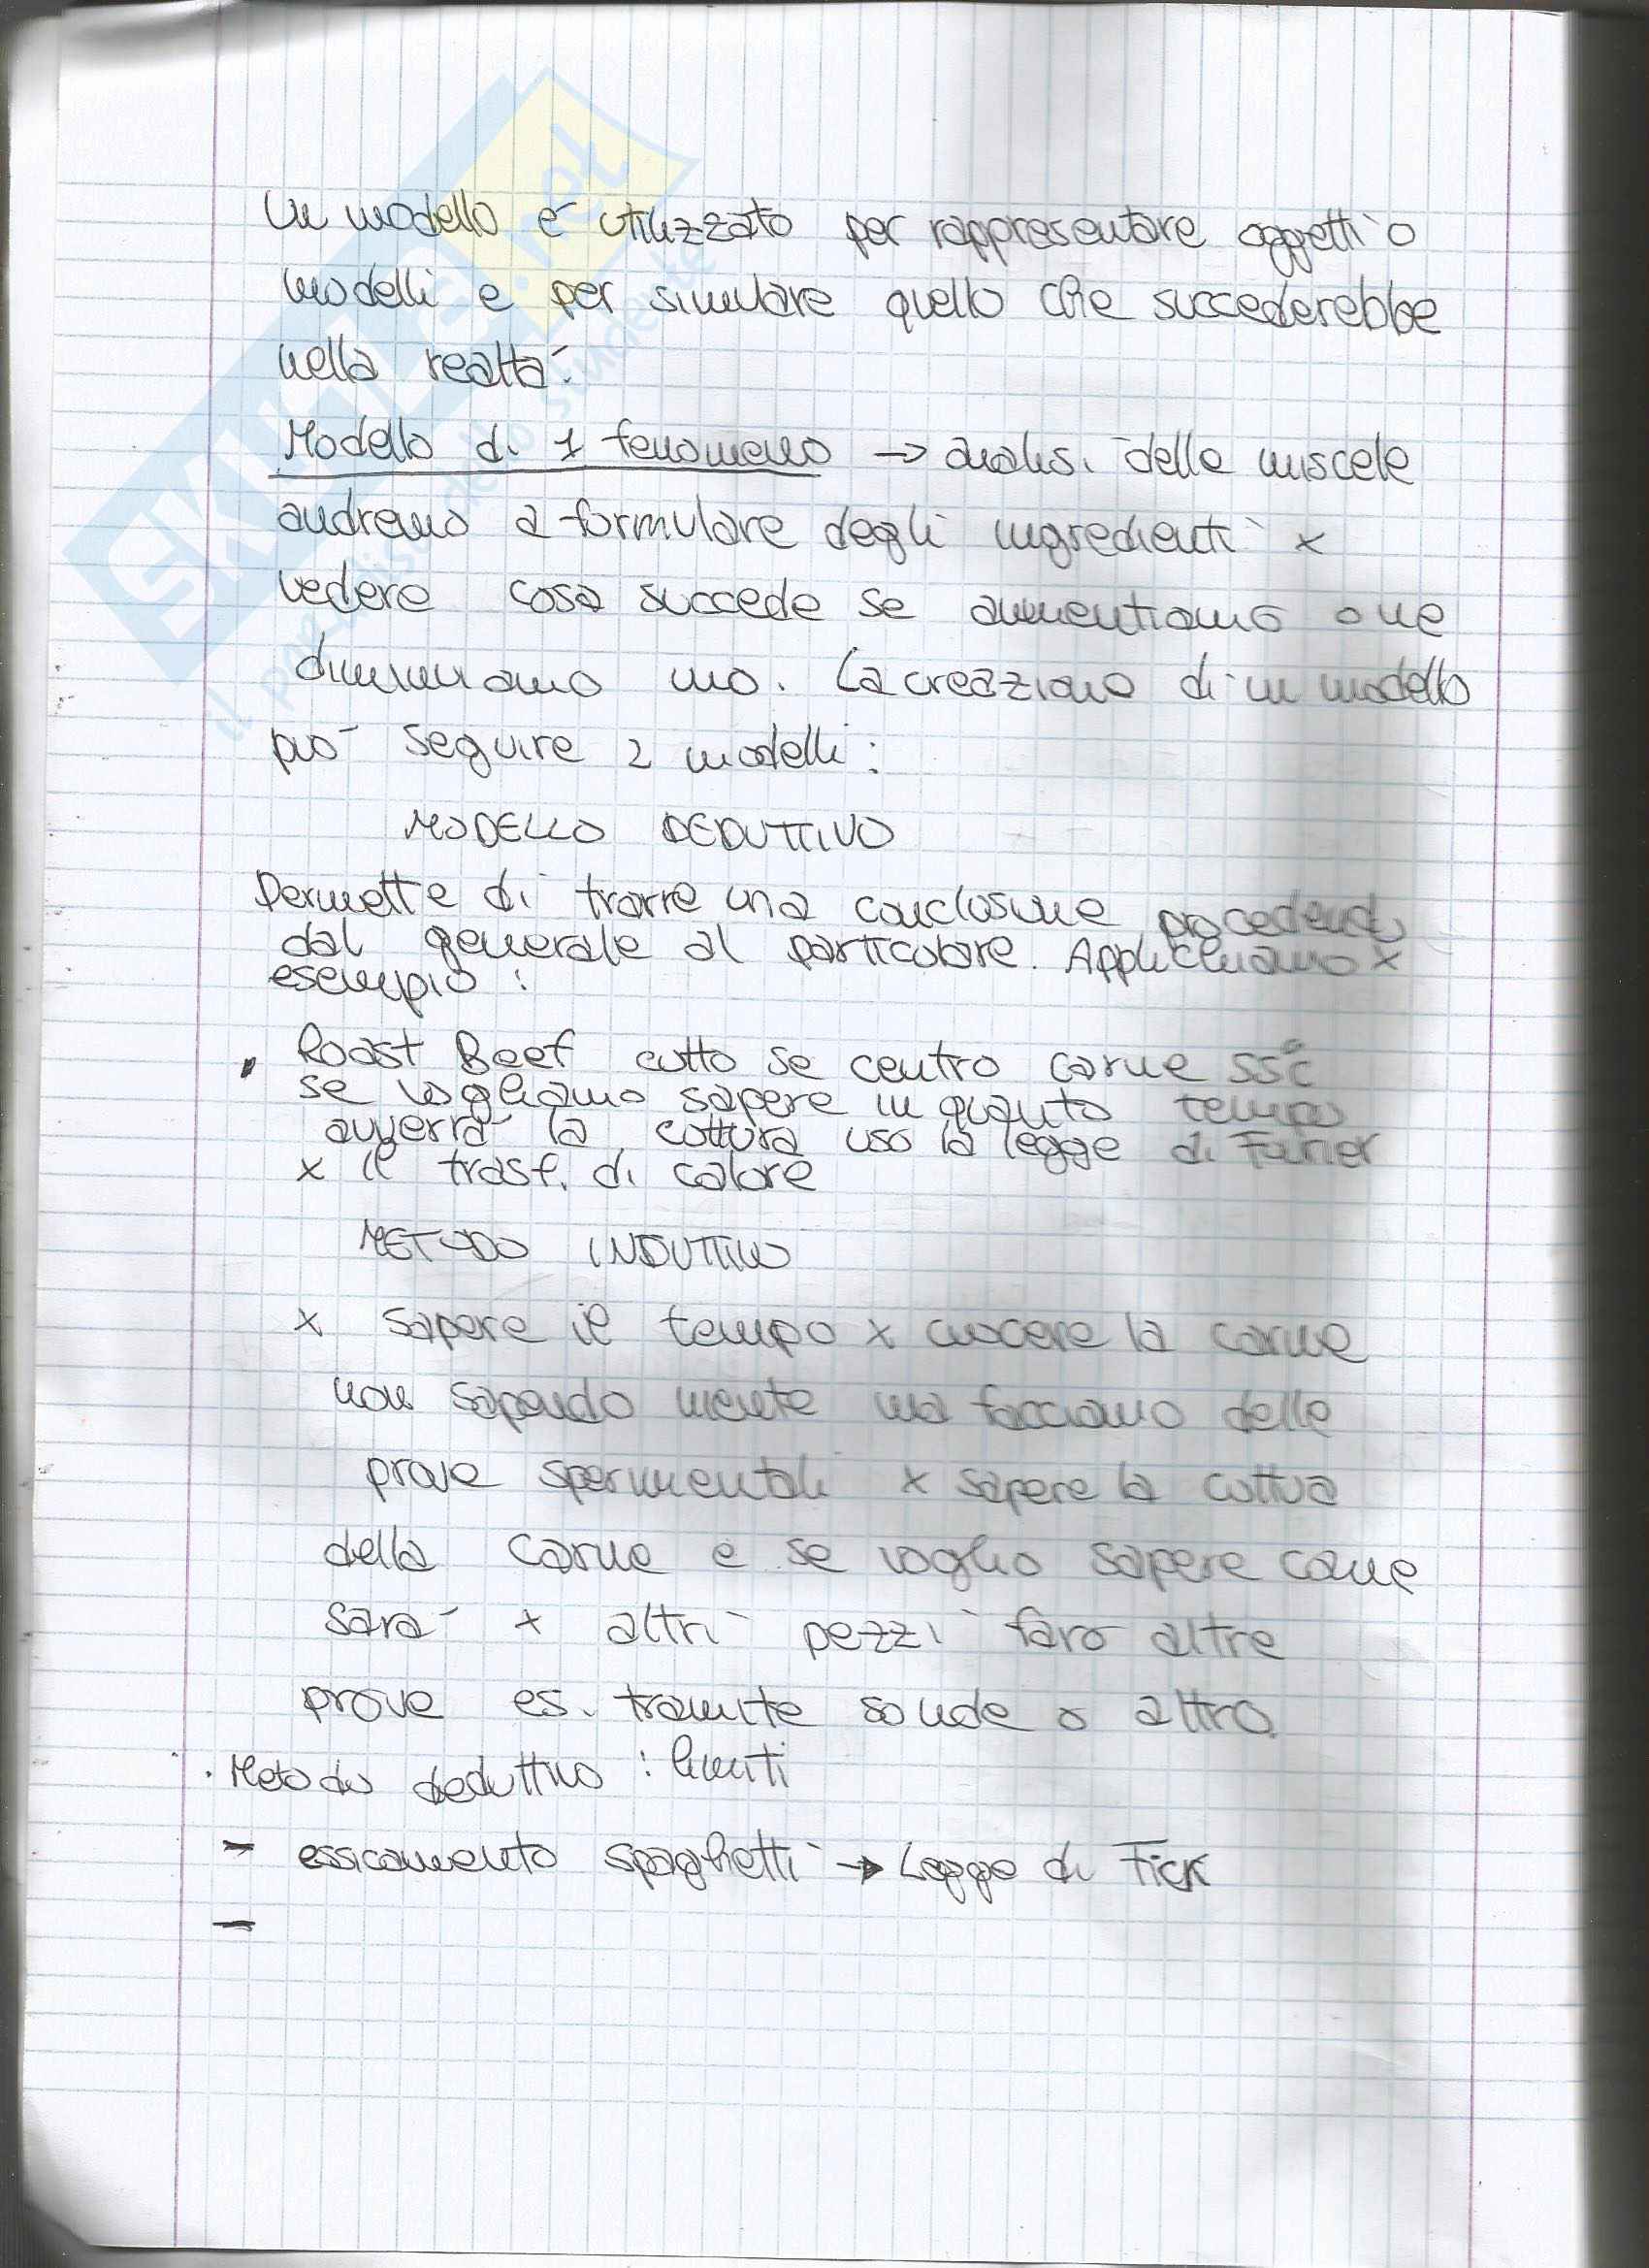 SKUOLA.net
il paradiso dello studente
Un modello é utilizzato per rappresentare oggetti o
modelli e per simulare quello che succederebbe
nella realtá.
Modello di 1 fenomeno → analisi delle miscele
andremo a formulare degli ingredienti x
vedere cosa succede se aumentiamo o ne
diminuiamo uno. La creazione di un modello
può seguire 2 modelli:
MODELLO DEDUTTIVO
Permette di trarre una conclusione procedendo
dal generale al particolare. Applichiamo x
esempio:
• Roast Beef cotto se centro carne 55°C
se vogliamo sapere in quanto tempo
avverrá la cottura uso la legge di Furier
x il trasf. di calore
METODO INDUTTIVO
x sapere il tempo x cuocere la carne
non sapendo niente ma facciamo delle
prove sperimentali x sapere la cottura
della carne e se voglio sapere come
sará x altri pezzi faro altre
prove es. tramite sonde o altro.
• Metodo deduttivo : limiti
- essicamento spaghetti → Legge di Fick
-